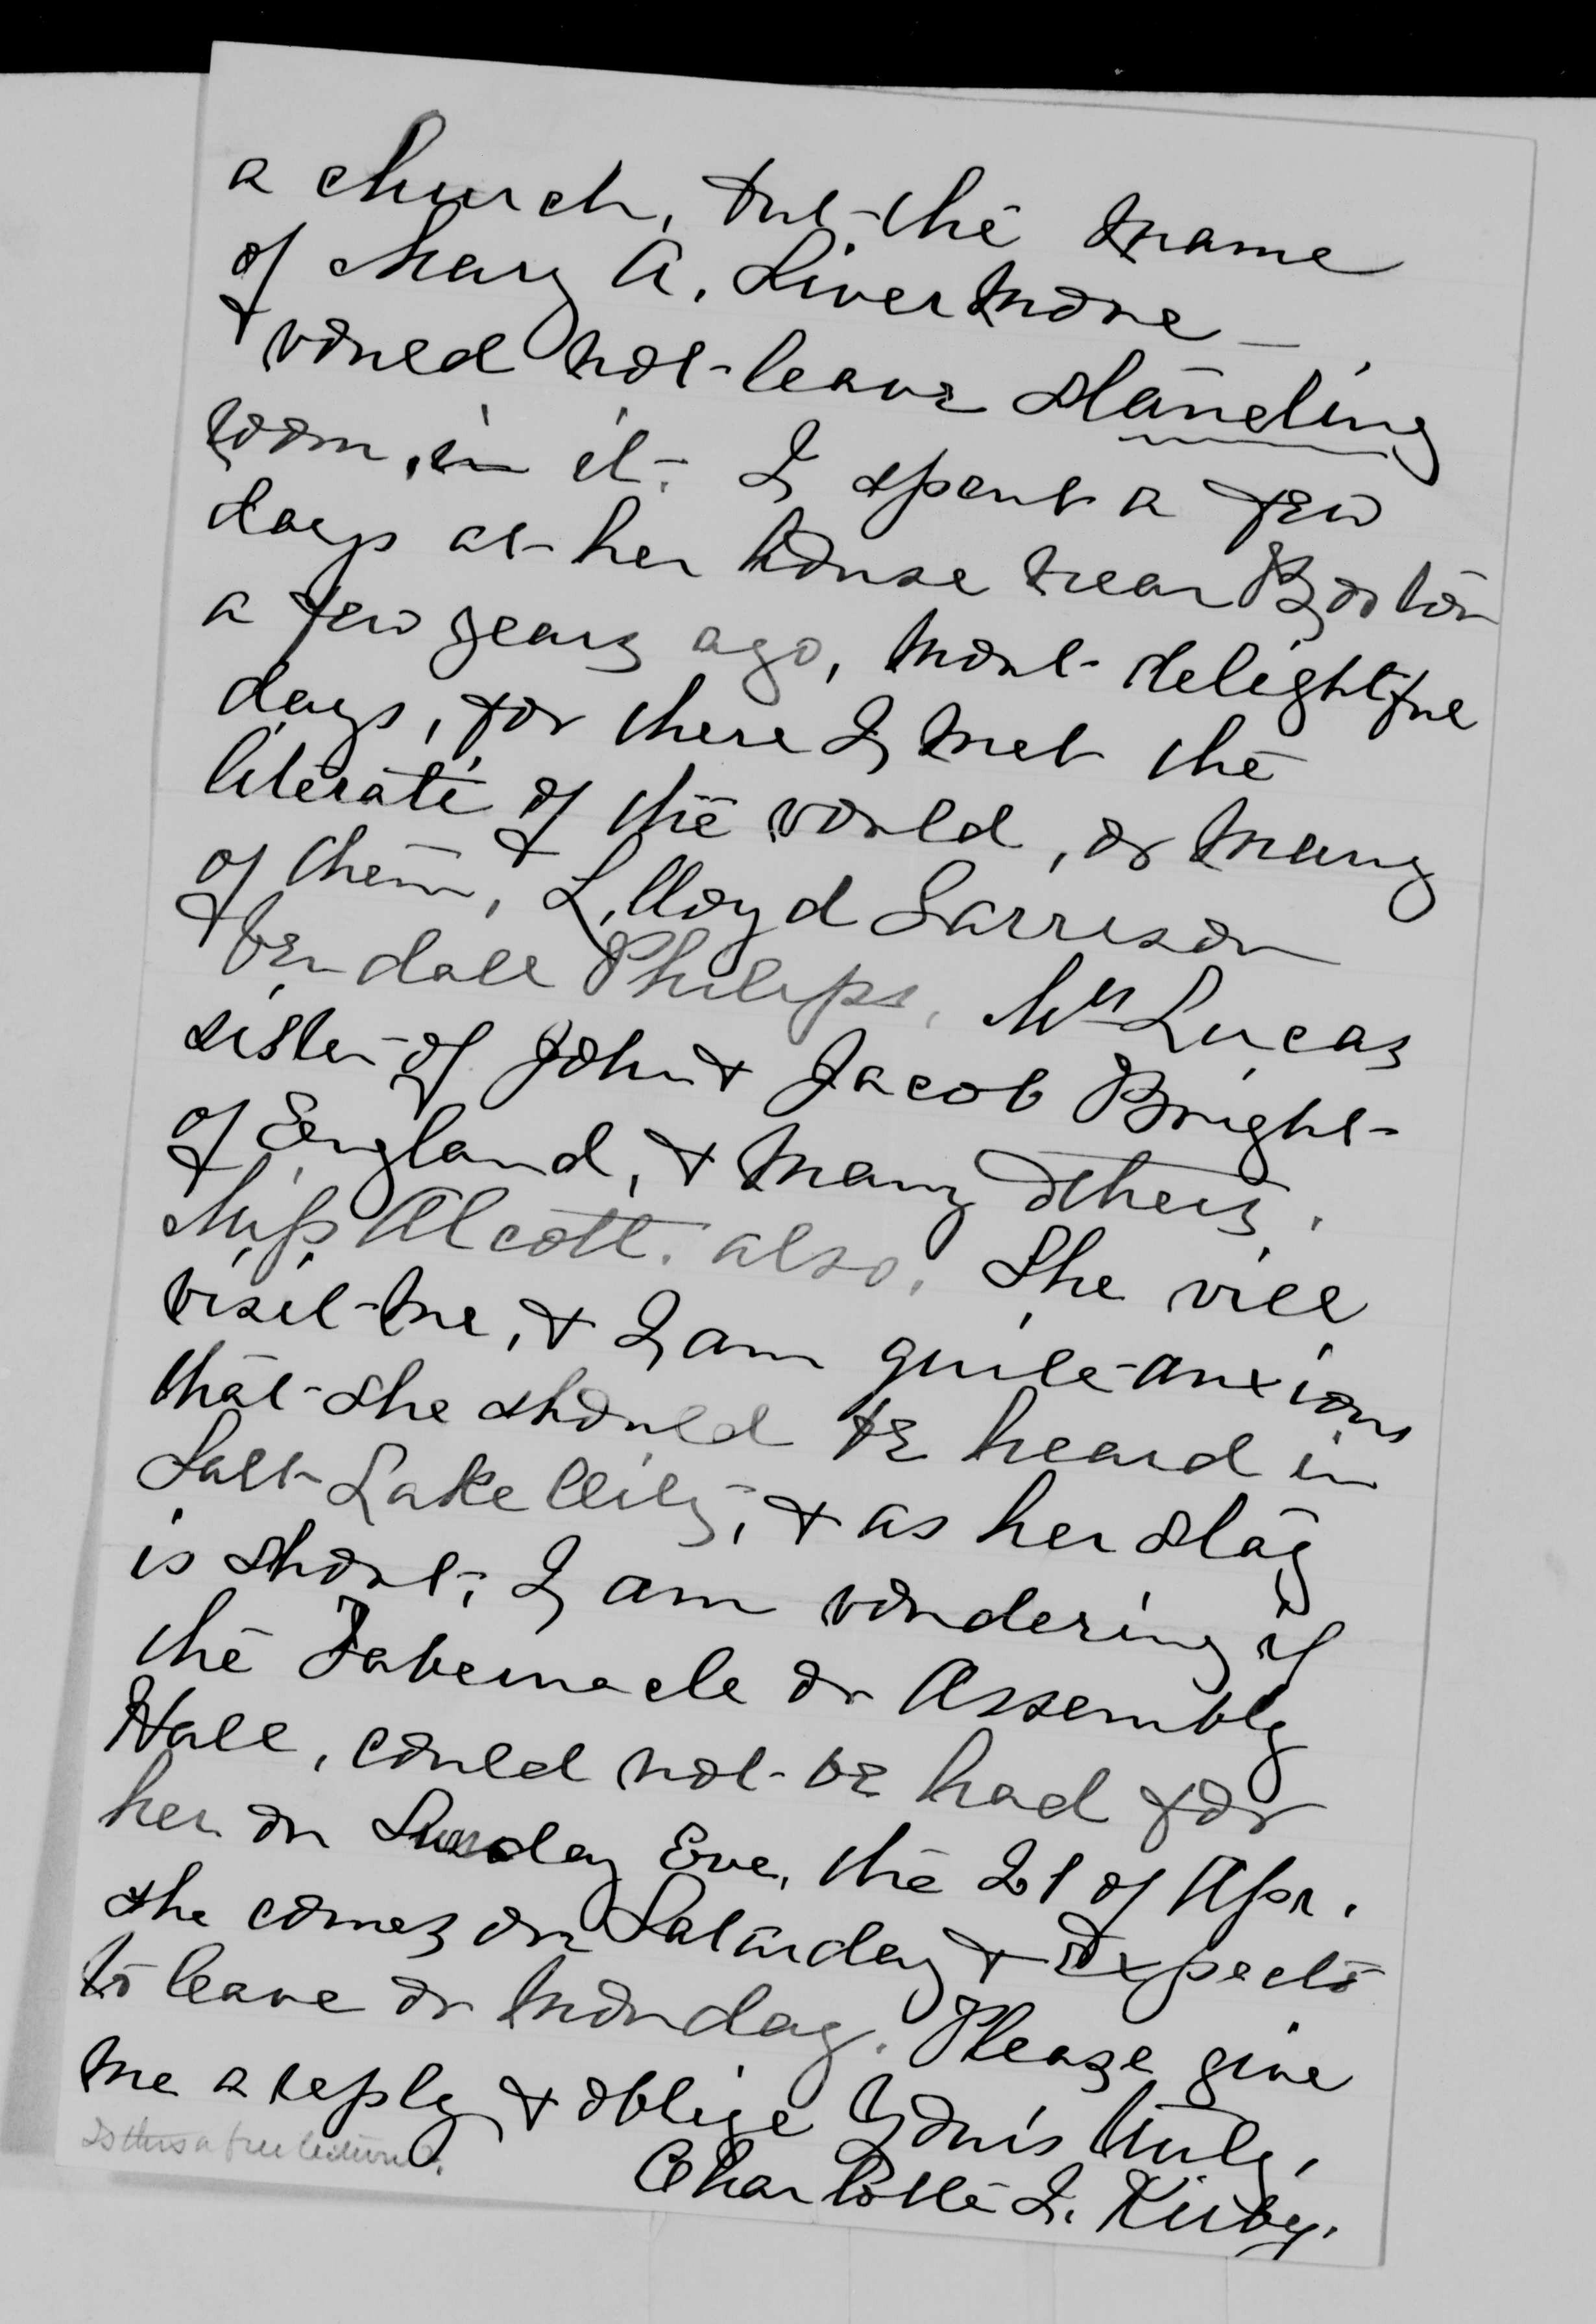 a church, but the name
of Mary A. Livermore
would not leave standing
room, in it. I spent a few
days at her house near Boston
a few years ago, most delightful
days, for there I met the
literati of the world, or many
of them, L. lloyd Garrison
Wendall Philips, Mrs Lucas
sister of John & Jacob Bright
of England, & many others,
Miss Alcott. also. She will
visit me, & I am quite anxious
that she should be heard in
Salt Lake City, & as her stay
is short, I am wondering if
the Tabernacle or Assembly
Hall, could not be had for
her on Sunday Eve, the 21 of Apr.
she comes on Saturday & expects
to leave on Monday. Please give
me a reply & oblige Yours truly,
Charlotte I. Kirby.
Is this a free lecture?